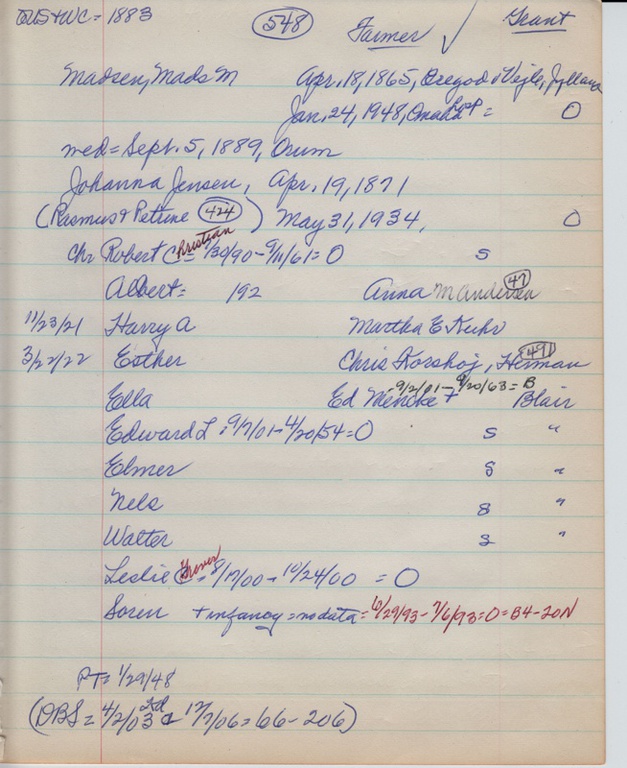 US+WC = 1883 548 Farmer ✓ Grant
Madsen, Mads M Apr. 18, 1865, & Vejle,
Jan. 24, 1948, Omaha Hosp = O
med = Sept. 5, 1889, Orum
Johanna Jensen, Apr. 19, 1871
(Rasmus + Petrine 424) May 31, 1934, O
Chr Robert C Christian = 1/30/90 - 9/11/61 = O s
Albert = 192 Anna M Andersen 47
11/23/21 Harry A Martha E Kuhr
3/22/22 Esther Chris Korshoj, Herman 491
Ella Ed Mencke + 9/2/01 - 9/20/63 = B Blair
Edward L = 9/7/01 - 4/20/54 = O s "
Elmer s "
Nels s "
Walter s "
Leslie G Grover = 8/17/00 - 10/24/00 = O
Soren + infancy = no data = 6/29/93 - 7/6/93 = O = B4-20N
PT = 1/29/48
(DBS = 4/2/03 12/7/06 = 66-206)